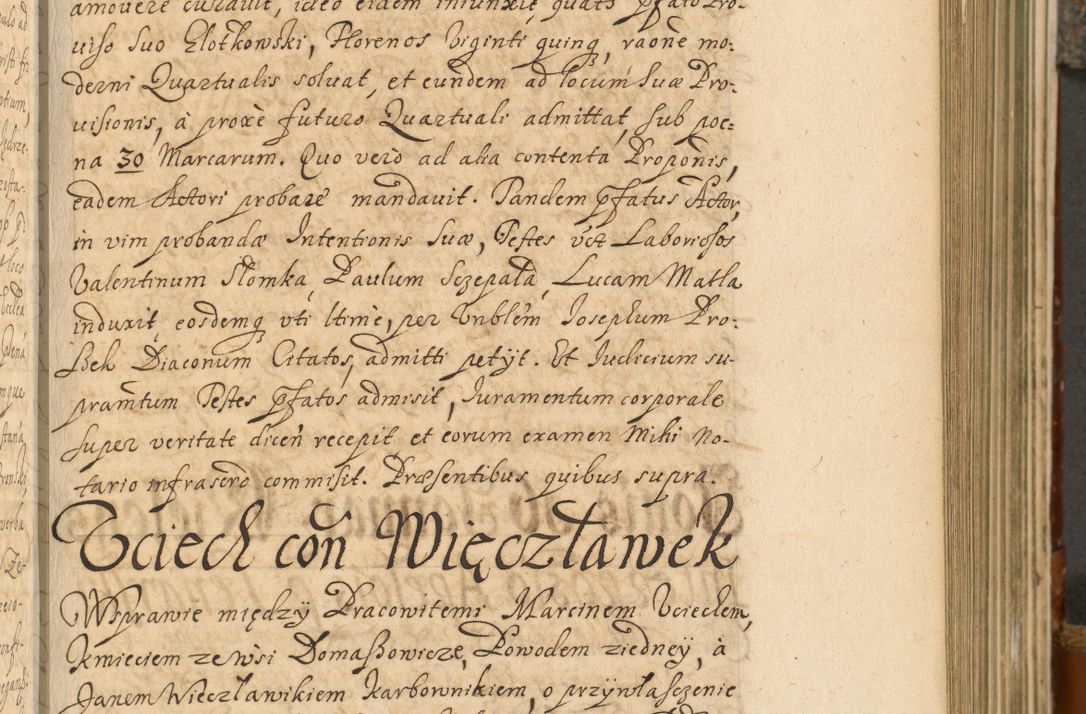 amovere curavit, ideo eidem iniunxit, quatȩ pfato Pro-
viso Suo Złotkowski, Florenos Viginti quinq, raone mo:
derni Quartualis solvat, et eundem ad locum Suæ Pro:
visionis, à proxe futuro Quartuali admittat, sub poe:
na 30 Marcarum. Quo verò ad alia contenta Proponis,
eadem Actori probare mandavit. Tandem pfatus Actor,
in vim probandæ Intentionis Suæ, Testes vct Laboriosos
Valentinum Słomka, Paulum Sczepała, Lucam Matla
induxit, eosdemq vti ltime, per Vnblem Iosephum Pro:
ßek Diaconum Citatos, admitti petÿt. Et Iudicium su-
pramtum Testes pfatos admisit, Iuramentum corporale
super veritate dicen recepit, et eorum examen Mihi No-
tario infrascro commisit. Præsentibus quibus supra.
Vciech con Więczławek
Wsprawie międzÿ Pracowitemi Marcinem Vciechem,
Kmieciem ze wsi Domaßowicze, Powodem ziednеÿ, à
Janem Wieczławikiem Karbownikiem, o przÿwłasczenie